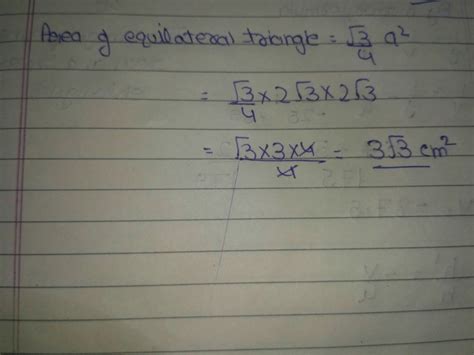 Area of equilateral triangle = √3/4 a²
= √3/4 × 2√3 × 2√3
= √3×3×4/4 = 3√3 cm²